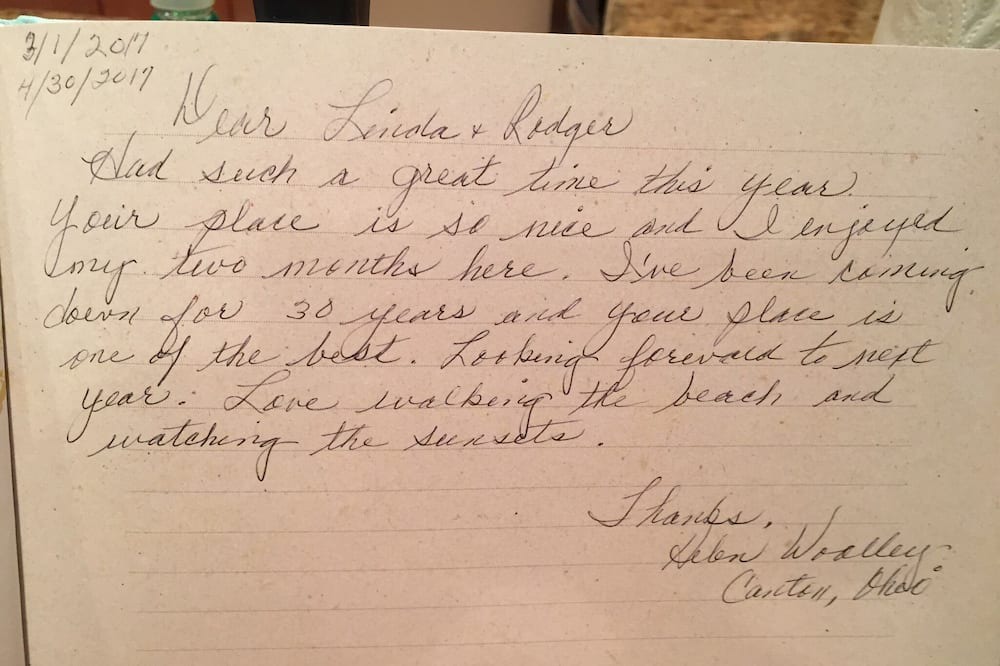 3/1/2017
4/30/2017
Dear Linda + Rodger
Had such a great time this year.
Your place is so nice and I enjoyed
my two months here. I've been coming
down for 30 years and your place is
one of the best. Looking foreward to next
year. Love walking the beach and
watching the sunsets.
Thanks,
Helen Woolley
Canton, Ohio